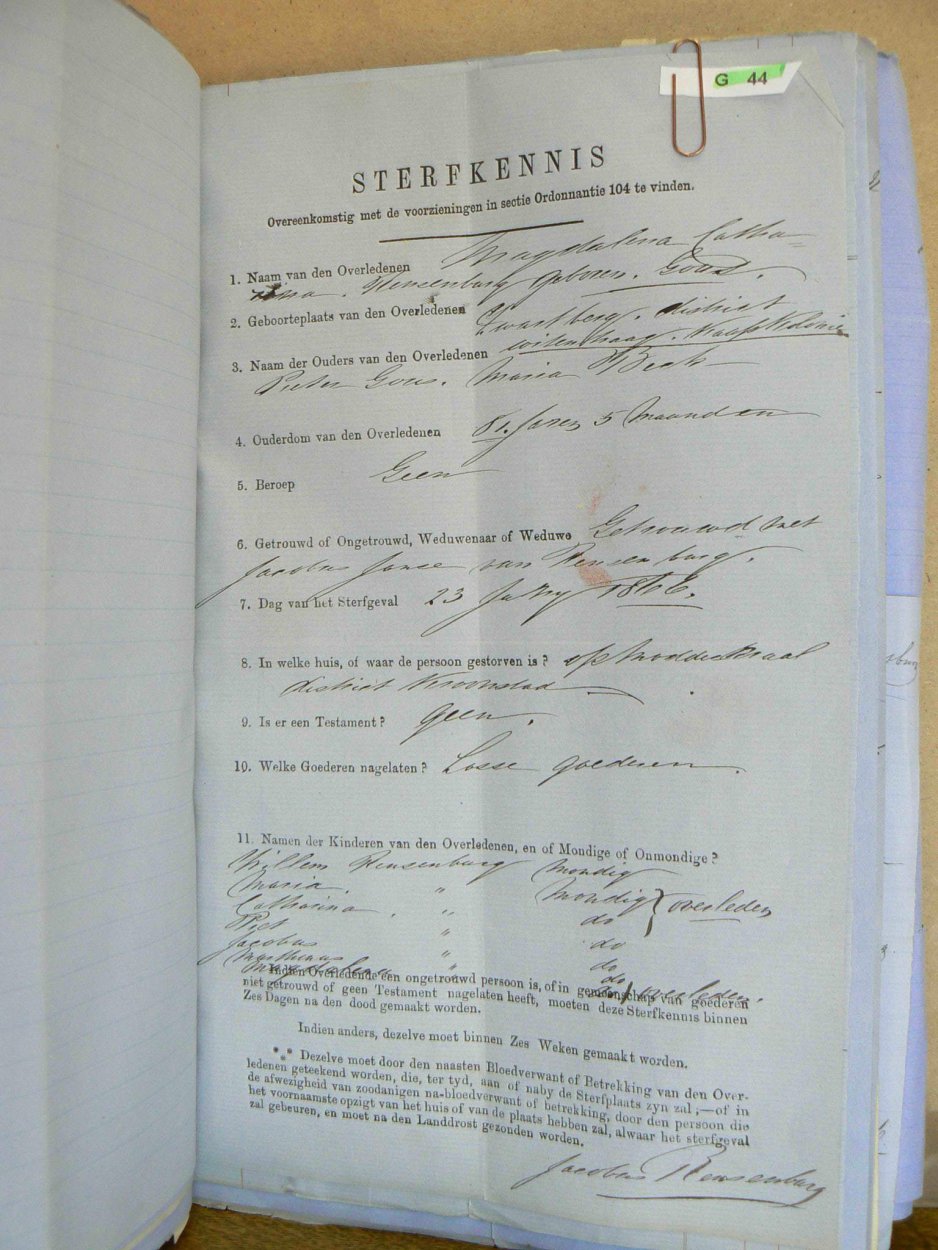 G 44
STERFKENNIS
Overeenkomstig met de voorzieningen in sectie Ordonnantie 104 te vinden.
1. Naam van den Overledenen Magdalena Catha-
rina. Rensenburg geboren. Gous.
2. Geboorteplaats van den Overledenen Zwartberg. district
uitenhaag. Kaap Kolonie
3. Naam der Ouders van den Overledenen
Pieter Gous. Maria
4. Ouderdom van den Overledenen 81. Jaren 5 Maanden
5. Beroep Geen
6. Getrouwd of Ongetrouwd, Weduwenaar of Weduwe Getrouwd met
Jacobus Janse van Rensenburg.
7. Dag van het Sterfgeval 23
8. In welke huis, of waar de persoon gestorven is? op Modderkraal
district Kroonstad
9. Is er een Testament? Geen.
10. Welke Goederen nagelaten? Losse goederen.
11. Namen der Kinderen van den Overledenen, en of Mondige of Onmondige?
Willem Rensenburg Mondig
Maria. " Mondig } overleden
Catharina. " do
Piet " do
Jacobus " do
Marthinus " do
Magdalena do overleden.
Indien Overledende een ongetrouwd persoon is, of in gemeenschap van goederen
niet getrouwd of geen Testament nagelaten heeft, moeten deze Sterfkennis binnen
Zes Dagen na den dood gemaakt worden.
Indien anders, dezelve moet binnen Zes Weken gemaakt worden.
*** Dezelve moet door den naasten Bloedverwant of Betrekking van den Over-
ledenen geteekend worden, die, ter tyd, aan of naby de Sterfplaats zyn zal;—of in
de afwezigheid van zoodanigen na-bloedverwant of betrekking, door den persoon die
het voornaamste opzigt van het huis of van de plaats hebben zal, alwaar het sterfgeval
zal gebeuren, en moet na den Landdrost gezonden worden.
Jacobus Rensenburg